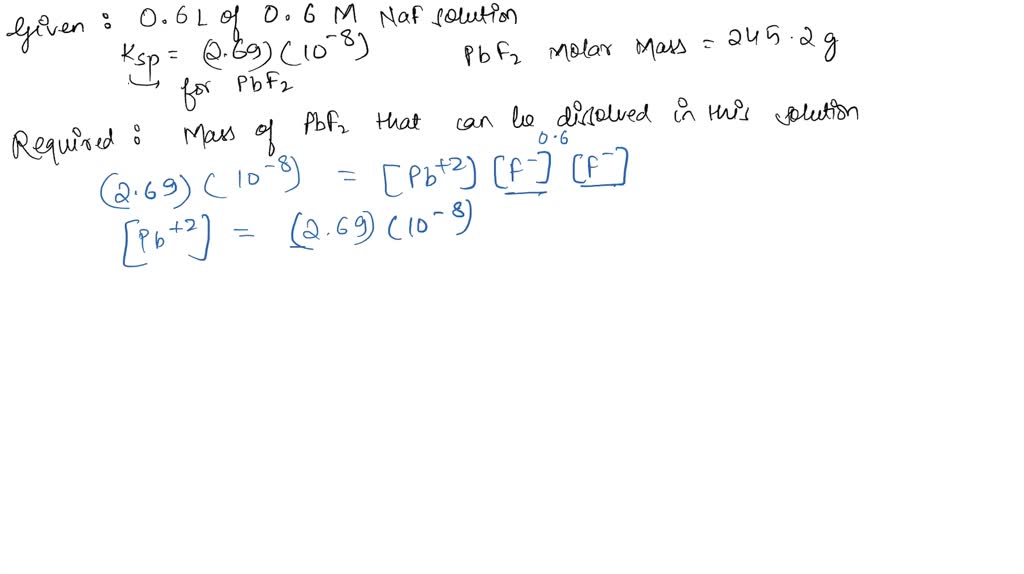 Given : 0.6 L of 0.6 M NaF solution
Ksp = (2.69)(10⁻⁸) PbF₂ molar Mass = 245.2 g
for PbF₂
Required : Mass of PbF₂ that can be dissolved in this solution
0.6
(2.69)(10⁻⁸) = [Pb⁺²] [F⁻] [F⁻]
[Pb⁺²] = (2.69)(10⁻⁸)